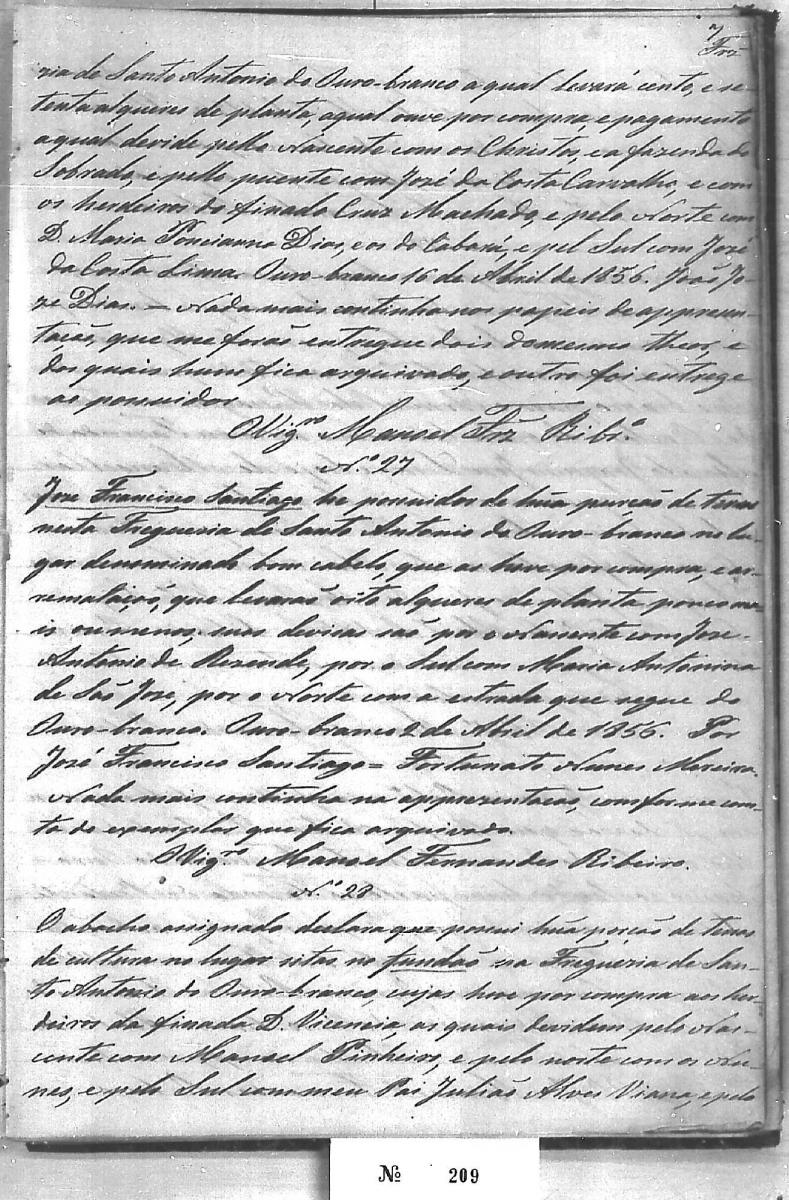 7
Frz
ria de Santo Antonio do Ouro-branco a qual levará cento, e se-
tenta alqueres de planta, a qual ouve por compra, e pagamento
a qual devide pello Nascente com os Christos, e a fazenda do
Sobrado, e pello puente com José da Costa Carvalho, e com
os herdeiros do finado Cruz Machado, e pelo Norte com
D. Maria Poncianna Dias, e os do Cabará, e pel Sul com José
da Costa Lima. Ouro-branco 16 de Abril de 1856. João Jo-
ze Dias. = Nada mais continha nos papeis de appresen-
tacão, que me forão entregue dois do mesmo theor, e
dos quais hum fica arquivado, e outro foi entrege
ao possuidor
O Vigr.º Manoel Frz Ribr.º
N.º 27
Joze Francisco Santiago he possuidor de hũa purcão de terras
nesta Fregueria de Santo Antonio do Ouro-branco no lu-
gar denominado bom cabelo, que as houve por compra, e ar-
rematacão, que levarão oito alqueres de planta pouco ma-
is ou menos, suas devisas são por o Nascente com Jose
Antonio de Rezende, por o Sul com Maria Antonina
de São Jose, por o Norte com a estrada que segue do
Ouro-branco. Ouro-branco 2 de Abril de 1856. Por
José Francisco Santiago = Fortunato Nunes Moreira.
Nada mais continha na apprezentacão, comforme cons-
ta do exemplar que fica arquivado.
O Vigr.º Manoel Fernandes Ribeiro.
N.º 28
O abacho assignado declara que possui hũa porcão de terras
de cultura no lugar sitas no fundão na Fregueria de San-
to Antonio do Ouro-branco, cujas houve por compra aos her-
deiros da finada D. Vicencia, as quais devidem pelo Nas-
cente com Manoel Pinheiro, e pelo norte com os Nu-
nes, e pelo Sul com meu Pai Julião Alves Viana, e pelo
Nº 209